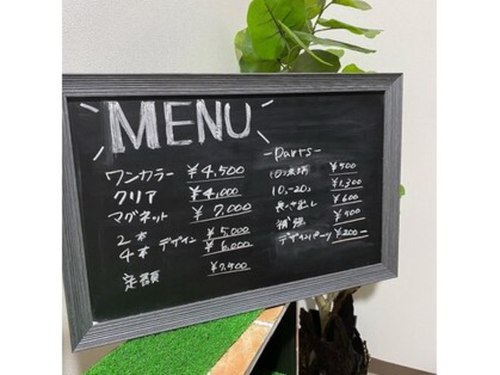 MENU
ワンカラー ¥4,500
クリア ¥4,000
マグネット ¥7,000
2本 デザイン ¥5,000
4本 ¥6,000
定額 ¥7,500
-Parts-
10コ未満 ¥500
10.-20. ¥1,300
長さ出し ¥600
補強 ¥400
デザインパーツ ¥200ー